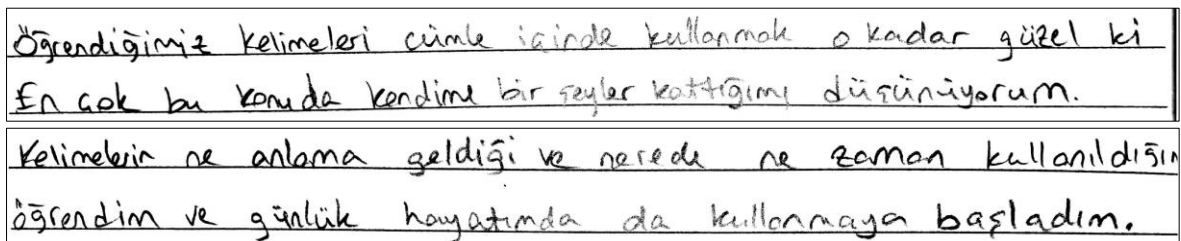 Öğrendiğimiz kelimeleri cümle içinde kullanmak o kadar güzel ki
En çok bu konuda kendime bir şeyler kattığımı düşünüyorum.
Kelimelerin ne anlama geldiği ve nerede ne zaman kullanıldığın
öğrendim ve günlük hayatımda da kullanmaya başladım.